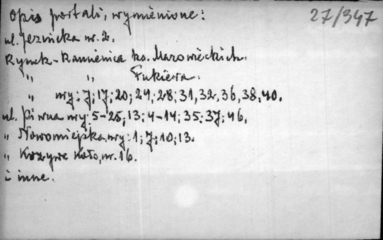 Opis portali, wymienione: 27/347
ul. Jezuicka nr. 2.
Rynek - Kamienica ks. Mazowieckich.
" " Fukiera.
" nry: 7; 17; 20; 21; 28; 31, 32, 36, 38, 40.
ul. Piwna nry: 5-25, 13; 4-14; 35; 37; 46.
" Nowomiejska nry: 1; 7; 10; 13.
" Krzywe Koło, nr. 16.
i inne.